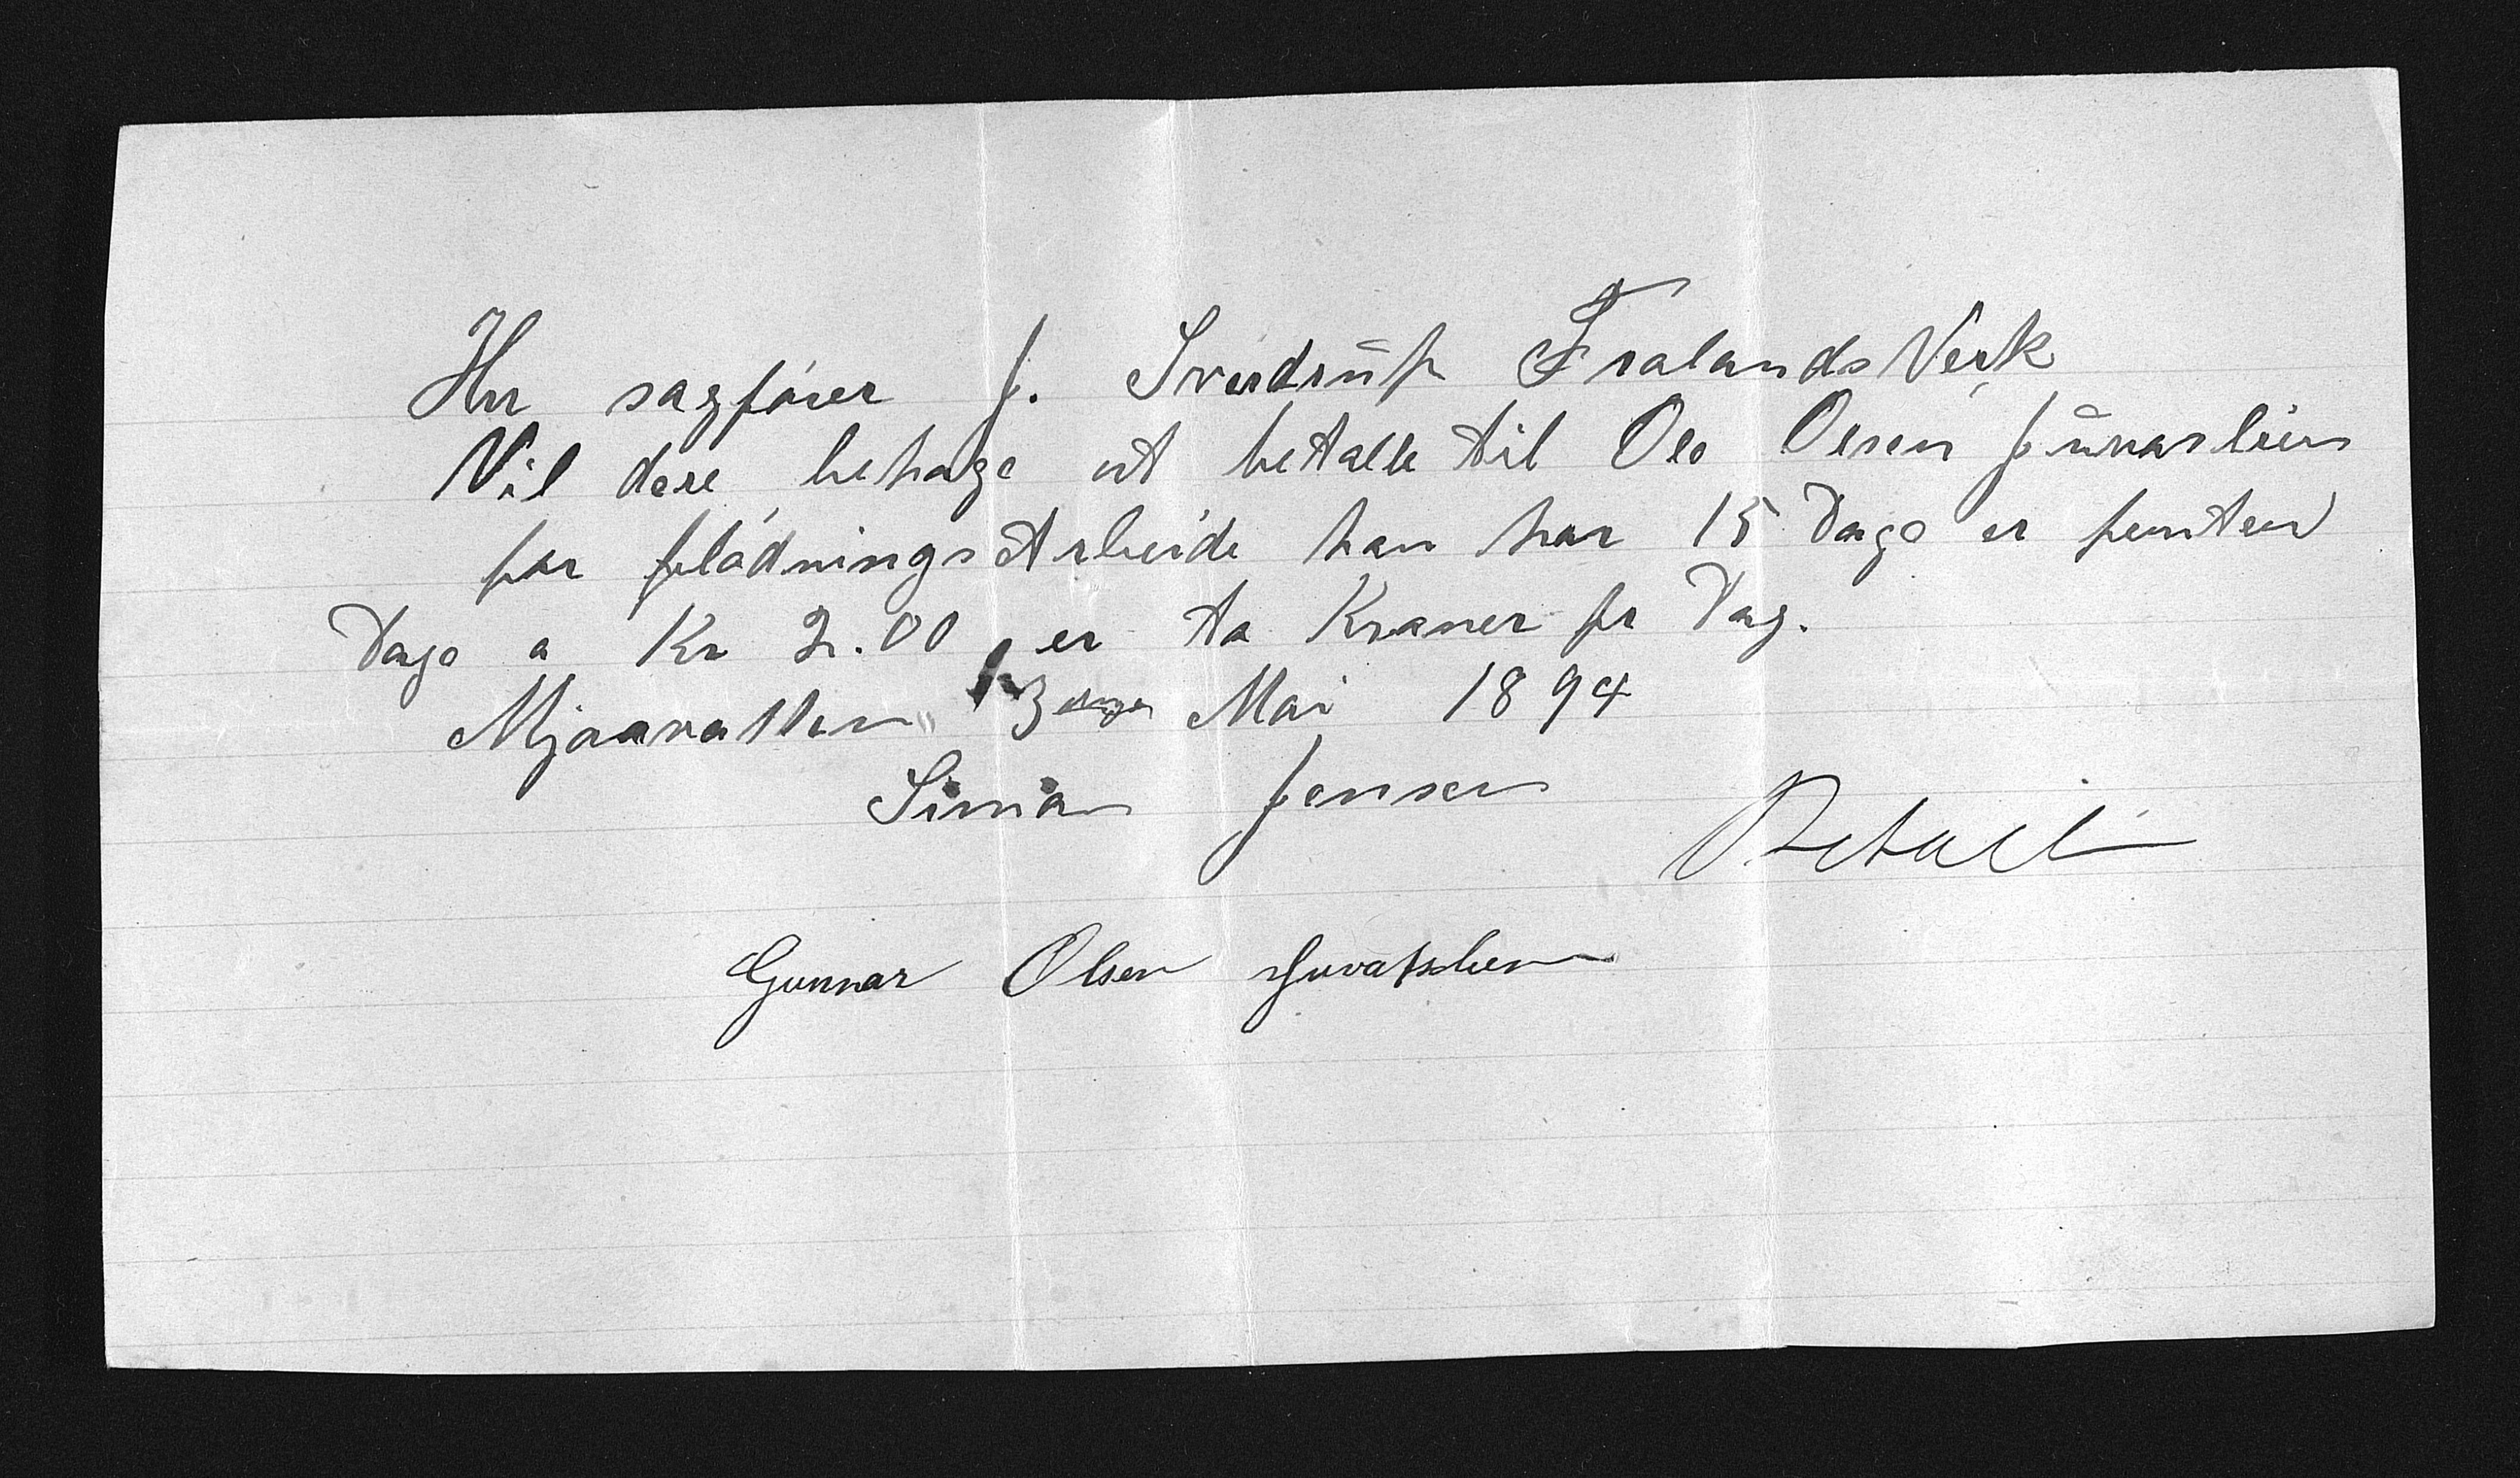 Hrr sagfører J. Sverdrŭp Frolands Verk
Vil dere behage at betalle til Ole Olsen Jŭvaslien
for flødnings Arbeide han har 15 Dage er femten
Dage a Kr 2.00 er to Kroner pr Dag.
Mjaavatten 13 Mai 1894
Simon Jensen
Betalt
Gunnar Olsen Juvatslien